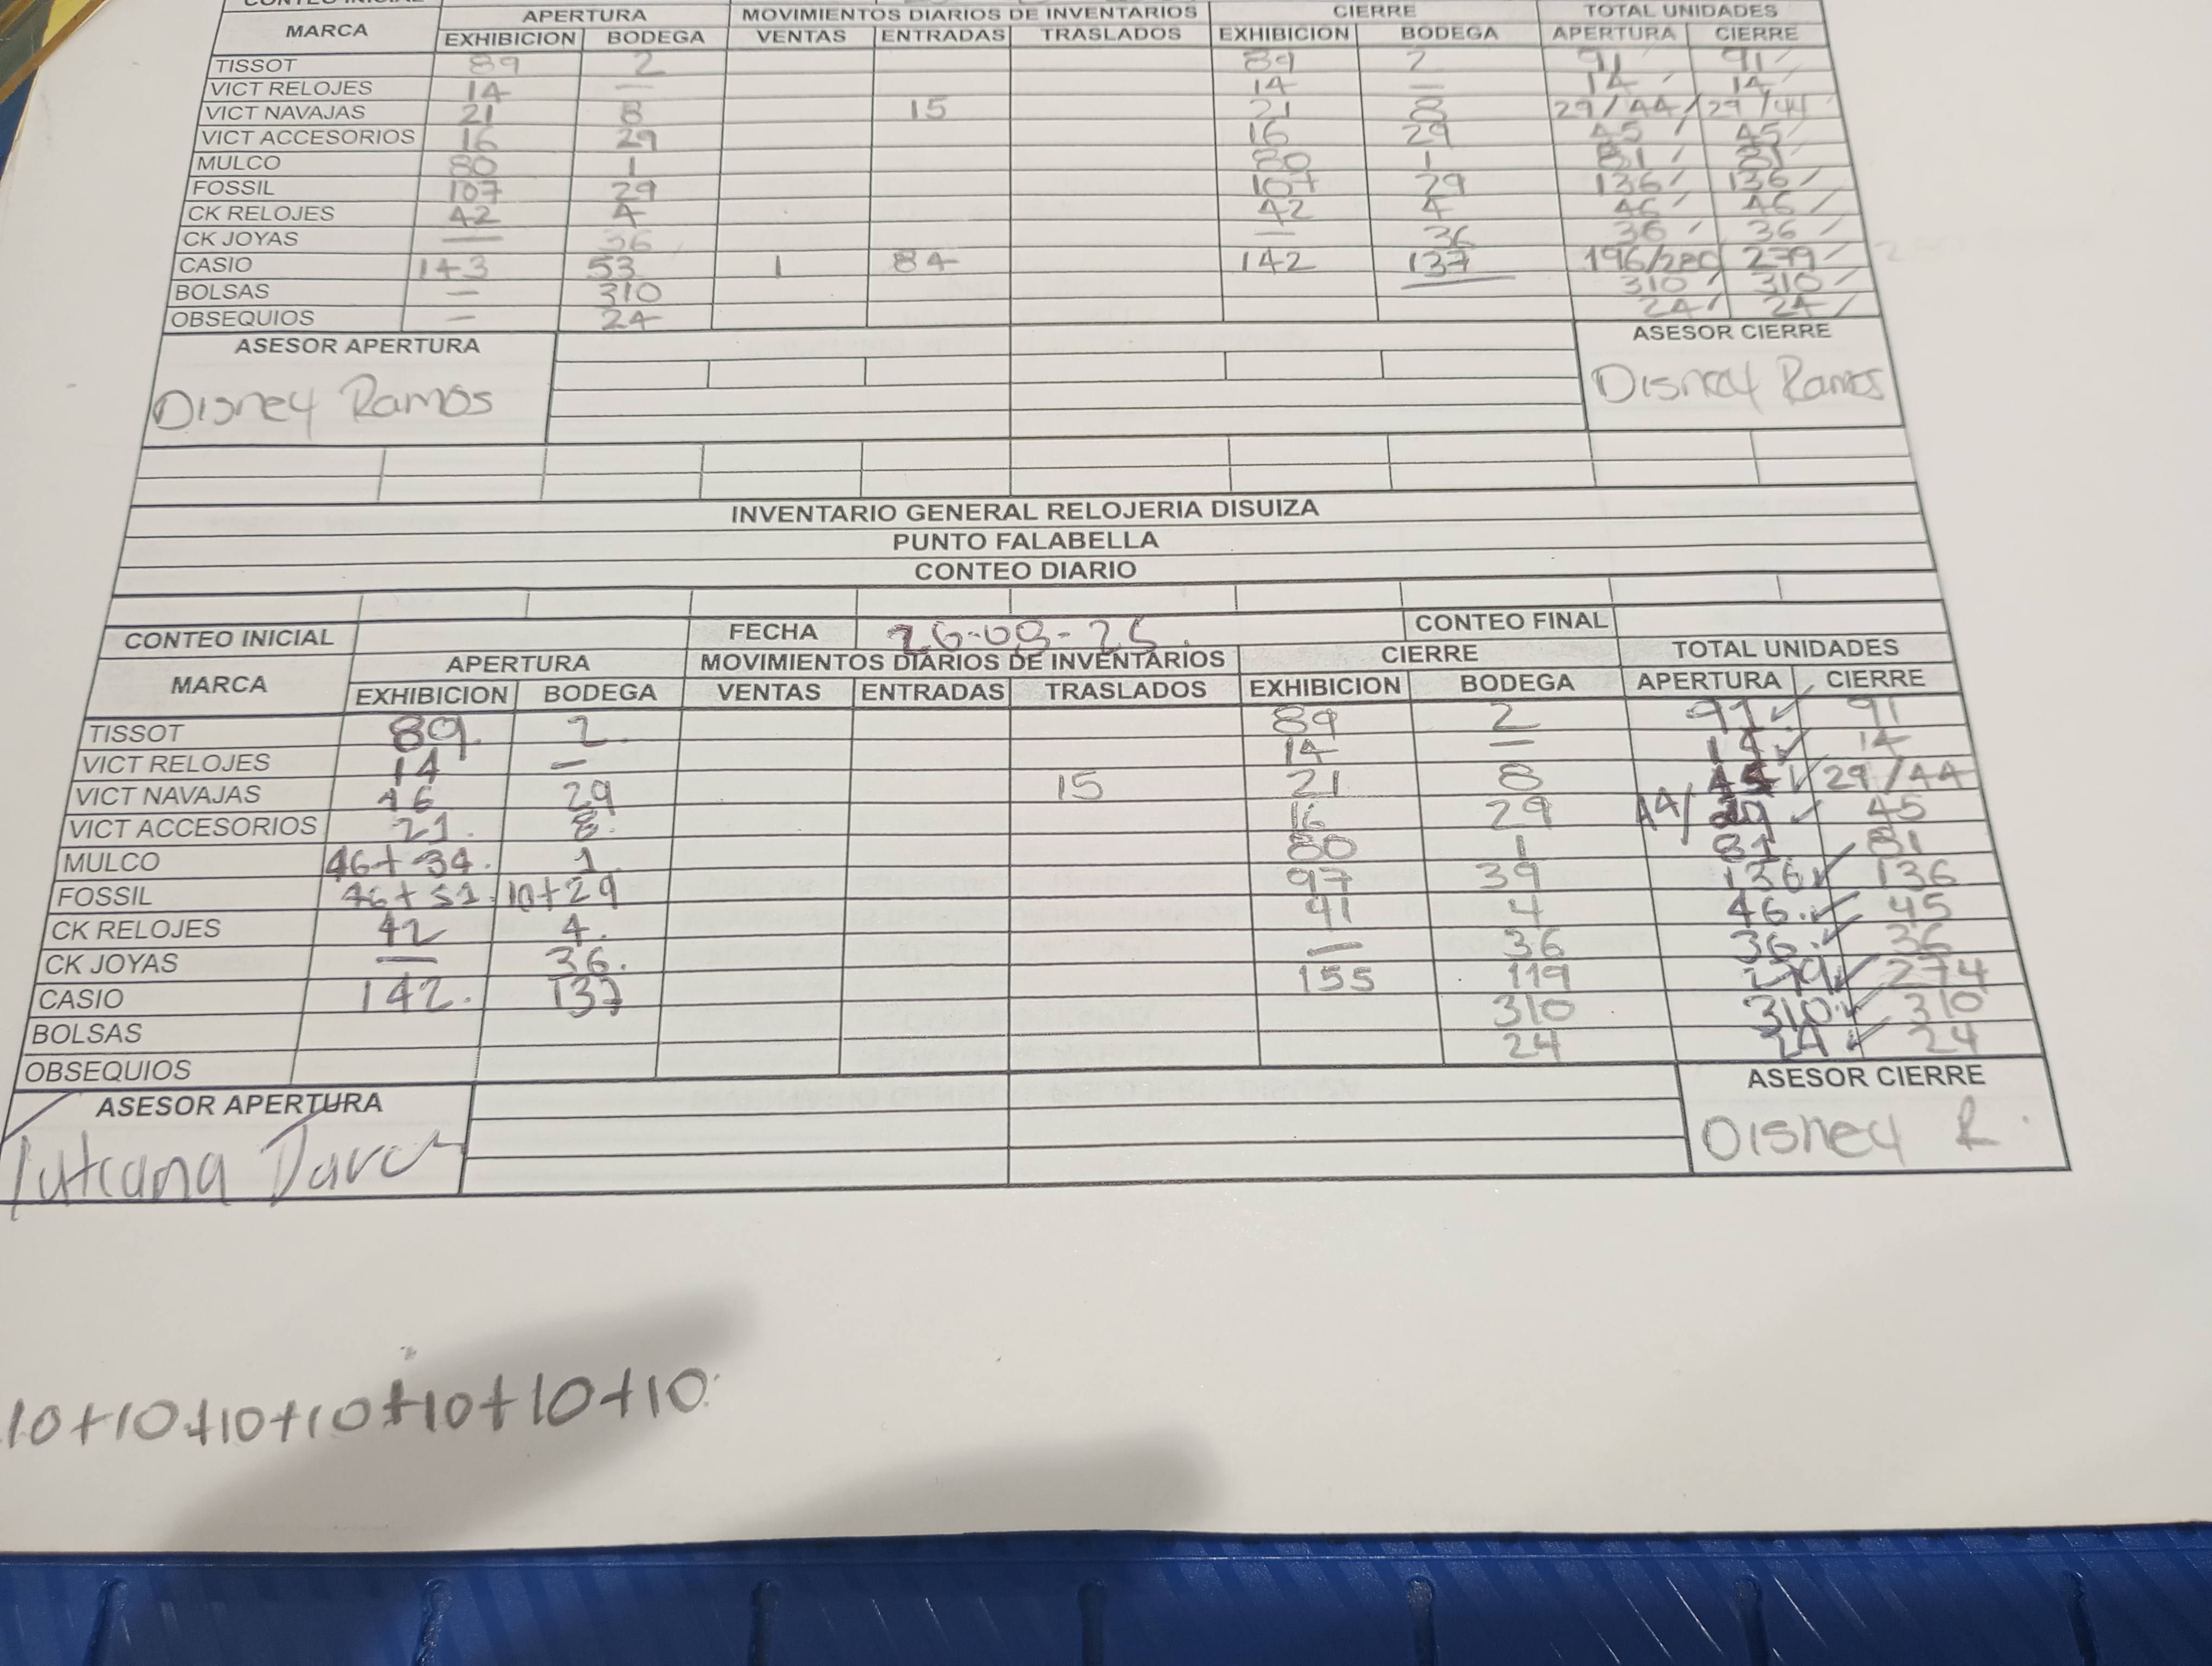 MARCA APERTURA MOVIMIENTOS DIARIOS DE INVENTARIOS CIERRE TOTAL UNIDADES
EXHIBICION BODEGA VENTAS ENTRADAS TRASLADOS EXHIBICION BODEGA APERTURA CIERRE
TISSOT 89 2 89 2 91 91
VICT RELOJES 14 — 14 — 14 14
VICT NAVAJAS 21 8 15 21 8 29/44 29/44
VICT ACCESORIOS 16 29 16 29 45 45
MULCO 80 1 80 1 81 81
FOSSIL 107 29 107 29 136 136
CK RELOJES 42 4 42 4 46 46
CK JOYAS — 36 — 36 36 36
CASIO 143 53 1 84 142 137 196/280 279
BOLSAS — 310 310 310
OBSEQUIOS — 24 24 24
ASESOR APERTURA ASESOR CIERRE
Disney Ramos Disney Ramos
INVENTARIO GENERAL RELOJERIA DISUIZA
PUNTO FALABELLA
CONTEO DIARIO
CONTEO INICIAL FECHA 26-08-25. CONTEO FINAL
MARCA APERTURA MOVIMIENTOS DIARIOS DE INVENTARIOS CIERRE TOTAL UNIDADES
EXHIBICION BODEGA VENTAS ENTRADAS TRASLADOS EXHIBICION BODEGA APERTURA CIERRE
TISSOT 89. 2. 89 2 91 91
VICT RELOJES 14 — 14 — 14 14
VICT NAVAJAS 16 29 15 21 8 45 29/44
VICT ACCESORIOS 21. 8. 16 29 44/ 45
MULCO 46+34. 1 80 1 81 81
FOSSIL 46+51. 10+29 97 39 136 136
CK RELOJES 42 4. 41 4 46. 45
CK JOYAS — 36. — 36 36. 36
CASIO 142. 137 155 119 279 274
BOLSAS 310 310. 310
OBSEQUIOS 24 24 24
ASESOR APERTURA ASESOR CIERRE
Disney R.
10+10+10+10+10+10+10.